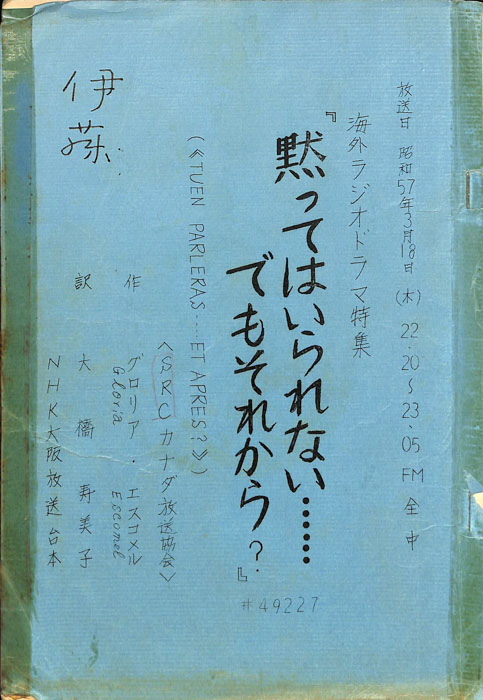 放送日 昭和57年3月18日(木) 22.20~23.05 FM 全中
海外ラジオドラマ特集
『黙ってはいられない……
でもそれから?』
#49227
(《TUEN PARLERAS...ET APRES?》)
<SRCカナダ放送協会>
作 グロリア・エスコメル
Gloria Escomel
訳 大橋寿美子
NHK大阪放送台本
伊藤